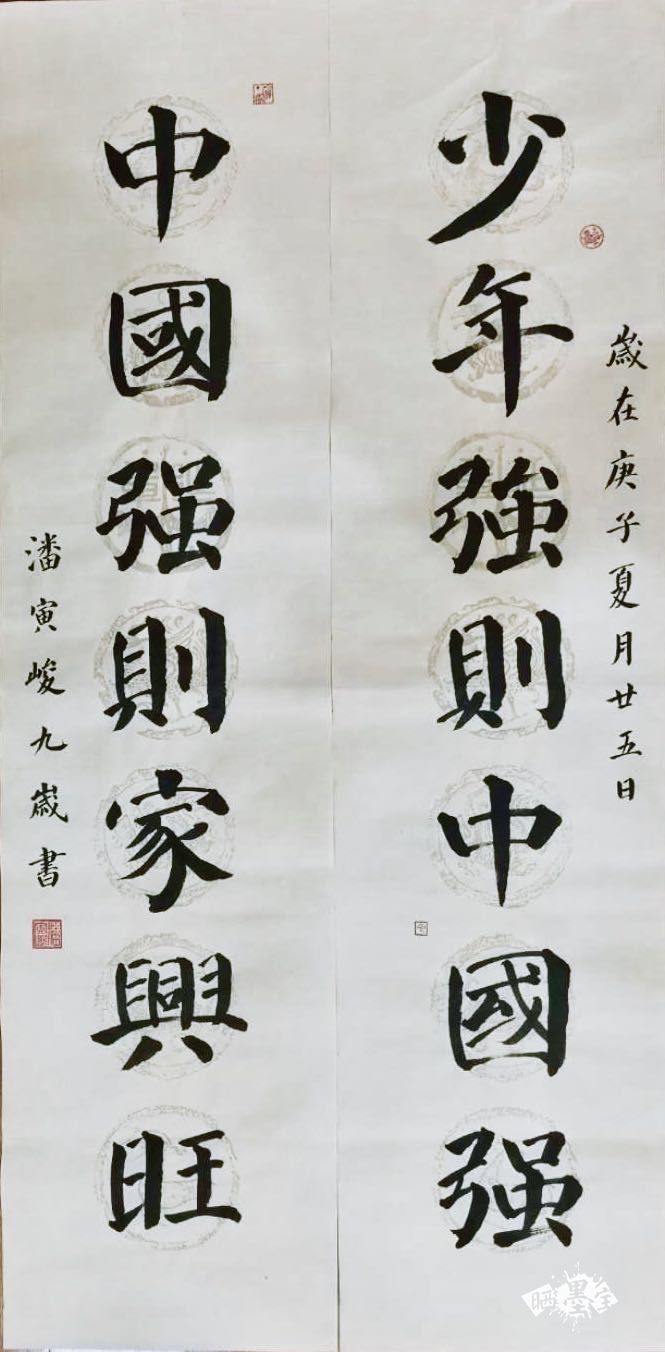 嵗在庚子夏月廿五日
少年強則中國强
中國强則家興旺
潘寅峻九嵗書
晒墨宝